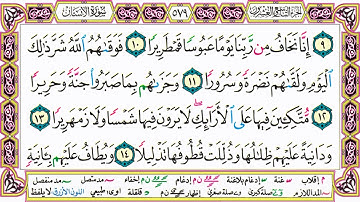 الجزء التاسع والعشرون ٥٧٩ سورة الإنسان
٩ إِنَّا نَخَافُ مِن رَّبِّنَا يَوْمًا عَبُوسًا قَمْطَرِيرًا ١٠ فَوَقَىٰهُمُ ٱللَّهُ شَرَّ ذَٰلِكَ
ٱلْيَوْمِ وَلَقَّىٰهُمْ نَضْرَةً وَسُرُورًا ١١ وَجَزَىٰهُم بِمَا صَبَرُوا۟ جَنَّةً وَحَرِيرًا
١٢ مُّتَّكِـِٔينَ فِيهَا عَلَى ٱلْأَرَآئِكِ ۖ لَا يَرَوْنَ فِيهَا شَمْسًا وَلَا زَمْهَرِيرًا ١٣
وَدَانِيَةً عَلَيْهِمْ ظِلَٰلُهَا وَذُلِّلَتْ قُطُوفُهَا تَذْلِيلًا ١٤ وَيُطَافُ عَلَيْهِم بِـَٔانِيَةٍ